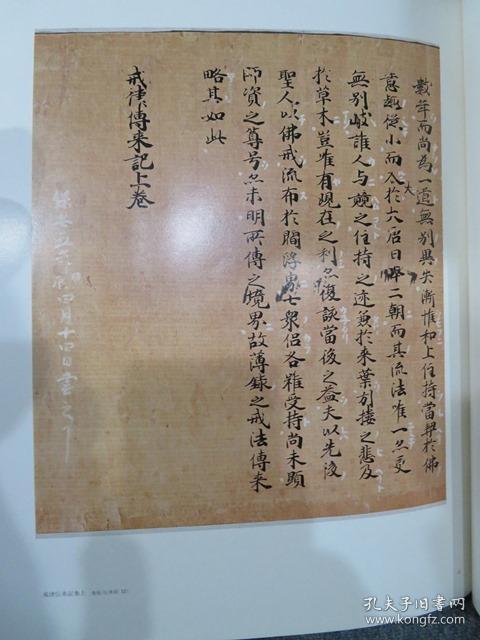 數年而尚為一道無別異矣漸惟和上住持當契於佛
意趣從小而入於大居日畢二朝而其流法唯一亦更
無別岐誰人与競之住持之迹兼於来葉引接之悲及
於草木豈唯有現在之利亦復詠當後之益夫以先後
聖人以佛戒流布於閻浮界七衆侶各雖受持尚未顯
師資之尊号亦未明所傳之境界故薄録之戒法傳来
略其如此
戒律傳来記上卷
五年 四月十四日
戒律伝来記巻上
孔夫子旧书网
kongfz.com